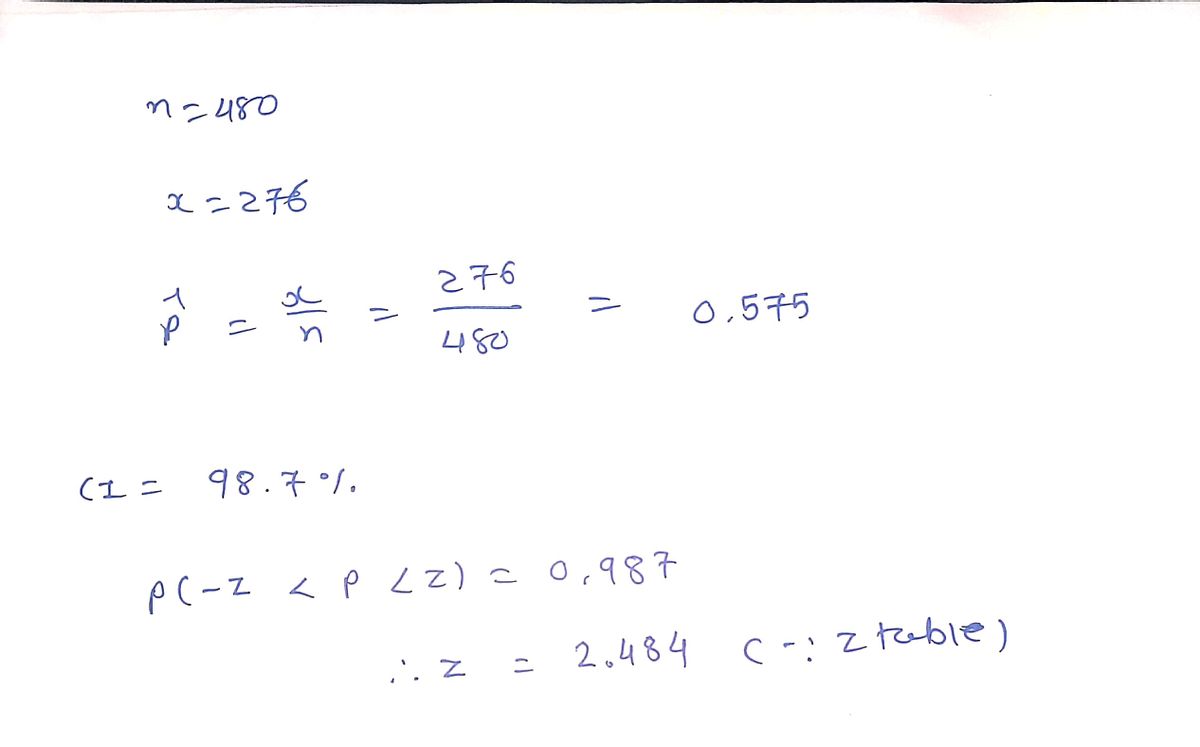 n = 480
x = 276
p̂ = x/n = 276/480 = 0.575
CI = 98.7 %.
P(-Z < P < Z) = 0.987
∴ Z = 2.484 (∵ z table)